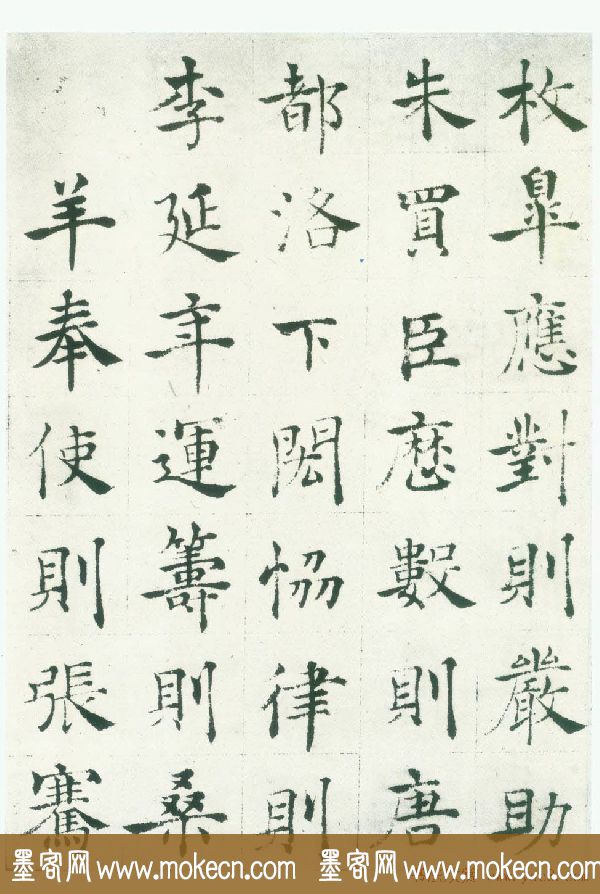 枚皐應對則嚴助
朱買臣歷數則唐
都洛下閎恊律則
李延年運籌則桑
羊奉使則張騫
墨客网 www.mokecn.com 墨客网 www.mokecn.com